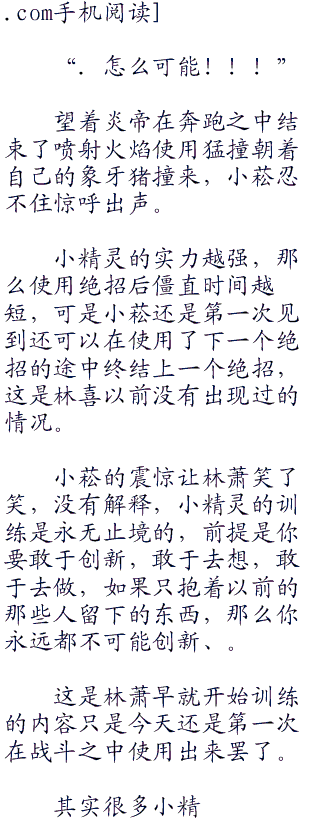 .com手机阅读]
“. 怎么可能！！！”
望着炎帝在奔跑之中结
束了喷射火焰使用猛撞朝着
自己的象牙猪撞来，小菘忍
不住惊呼出声。
小精灵的实力越强，那
么使用绝招后僵直时间越
短，可是小菘还是第一次见
到还可以在使用了下一个绝
招的途中终结上一个绝招，
这是林喜以前没有出现过的
情况。
小菘的震惊让林萧笑了
笑，没有解释，小精灵的训
练是永无止境的，前提是你
要敢于创新，敢于去想，敢
于去做，如果只抱着以前的
那些人留下的东西，那么你
永远都不可能创新、。
这是林萧早就开始训练
的内容只是今天还是第一次
在战斗之中使用出来罢了。
其实很多小精